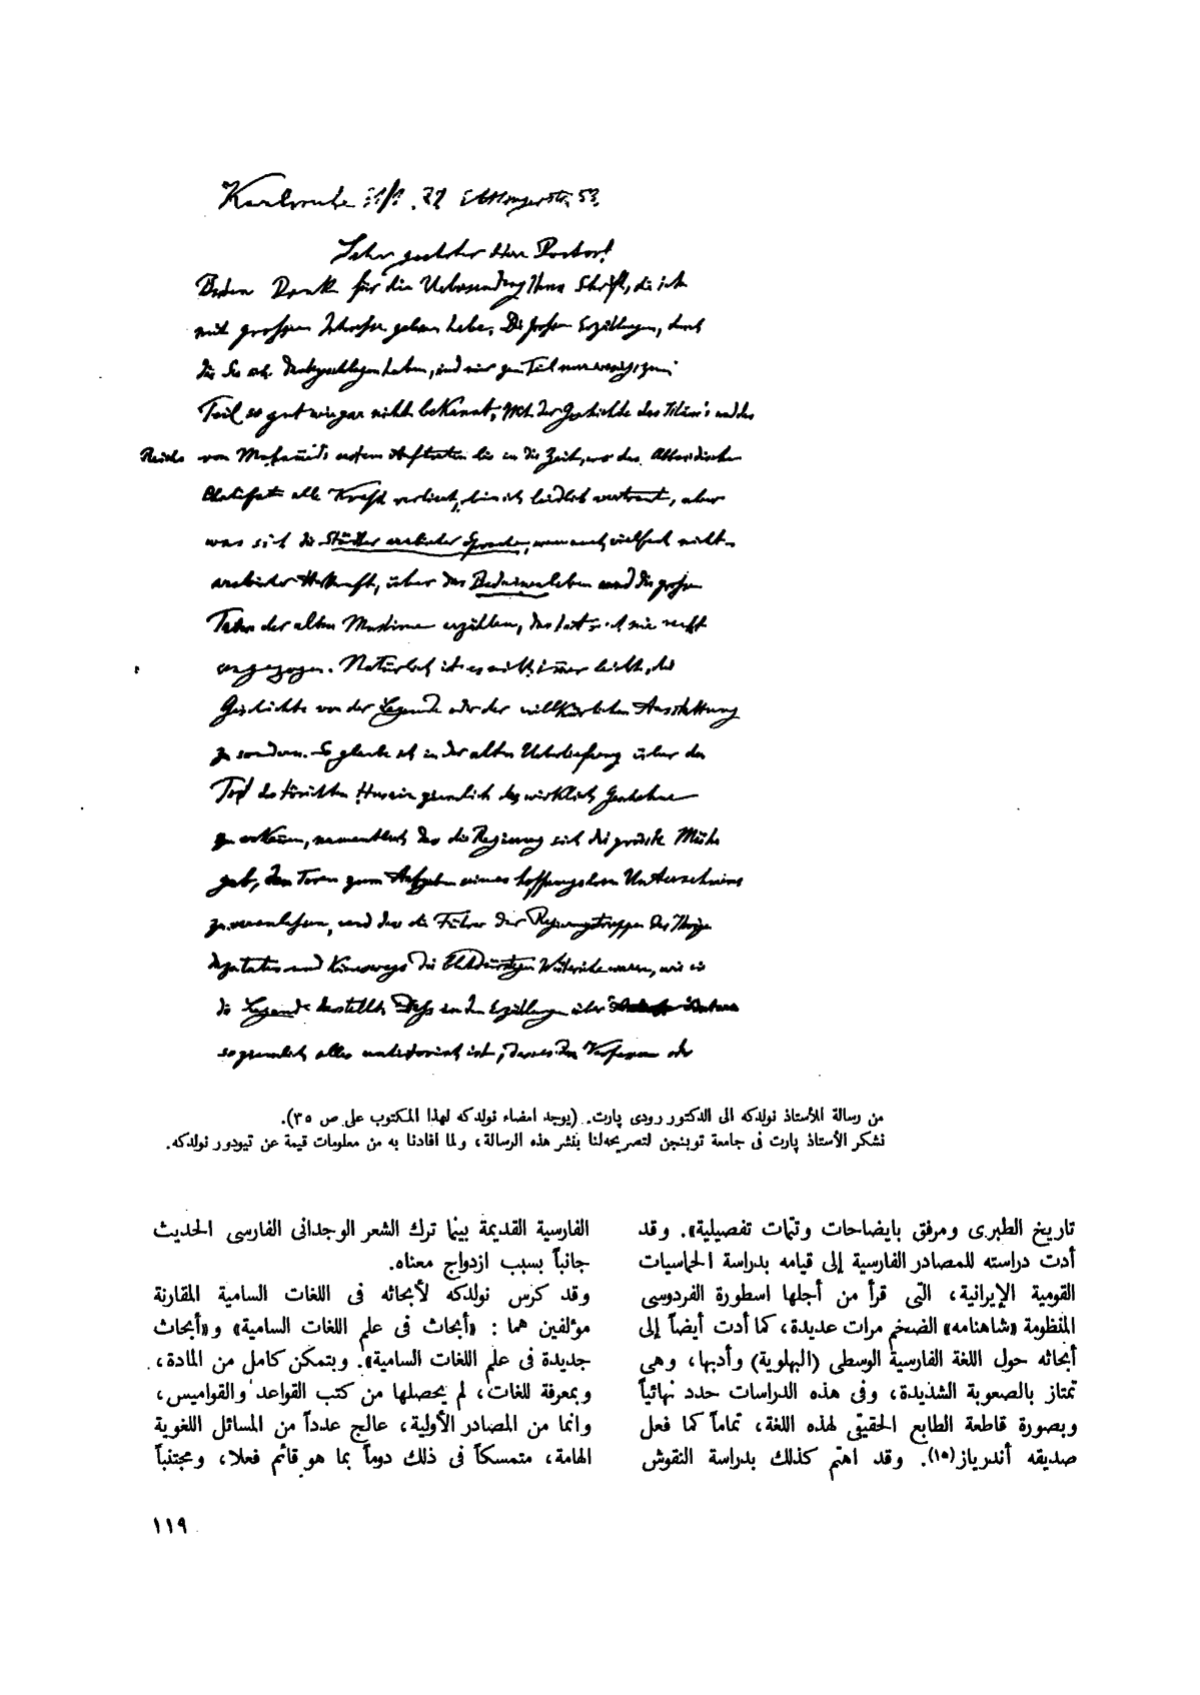 Karlsruhe
Sehr geehrter Herr Doctor!
Besten Dank für die Uebersendung Ihrer Schrift, die ich
mit grossem Interesse gelesen habe. Die grossen Erzählungen, durch
die Sie sich durchgeschlagen haben, sind mir zum Teil nur wenig, zum
Teil so gut wie gar nicht bekannt. Mit der Geschichte des Islām's und des
Reichs von Mohammeds erstem Auftreten bis in die Zeit, wo das Abbasidische
Chalifat alle Kraft verliert, bin ich leidlich vertraut, aber
was sich die Städter arabischer Sprache, wenn auch vielfach nicht
arabischer Herkunft, über das Beduinenleben und die grossen
Taten der alten Muslime erzählen, das hat mich nie recht
angezogen. Natürlich ist es nicht immer leicht, die
Geschichte von der Legende oder der willkürlichen Ausstattung
zu sondern. So glaube ich in der alten Ueberlieferung über den
Tod des törichten Husain ziemlich das wirklich Geschehene
zu erkennen, namentlich dass die Regierung sich die grösste Mühe
gab, den Toren zum Aufgeben seines hoffnungslosen Unternehmens
zu veranlassen, und dass die Führer der Regierungstruppen
und keineswegs die blutdürstigen Wüteriche waren, wie sie
die Legende darstellt. Dass in den Erzählungen über
so ziemlich alles unhistorisch ist, dass es den Verfassern
من رسالة للأستاذ نولدكه الى الدكتور رودى پارت. (يوجد امضاء نولدكه لهذا المكتوب على ص ٣٥).
نشكر الأستاذ پارت فى جامعة توبنجن لتصريحه لنا بنشر هذه الرسالة، ولما افادنا به من معلومات قيمة عن تيودور نولدكه.
تاريخ الطبرى ومرفق بايضاحات وتتمات تفصيلية». وقد
أدت دراسته للمصادر الفارسية إلى قيامه بدراسة الحماسيات
القومية الإيرانية، التى قرأ من أجلها اسطورة الفردوسى
المنظومة «شاهنامه» الضخم مرات عديدة، كما أدت أيضاً إلى
أبحاثه حول اللغة الفارسية الوسطى (البهلوية) وأدبها، وهى
تمتاز بالصعوبة الشديدة، وفى هذه الدراسات حدد نهائياً
وبصورة قاطعة الطابع الحقيقى لهذه اللغة، تماماً كما فعل
صديقه أندرياز(١٥). وقد اهتم كذلك بدراسة النقوش
الفارسية القديمة بينما ترك الشعر الوجدانى الفارسى الحديث
جانباً بسبب ازدواج معناه.
وقد كرس نولدكه لأبحاثه فى اللغات السامية المقارنة
مؤلفين هما : «أبحاث فى علم اللغات السامية» و«أبحاث
جديدة فى علم اللغات السامية». وبتمكن كامل من المادة،
وبمعرفة للغات، لم يحصلها من كتب القواعد والقواميس،
وانما من المصادر الأولية، عالج عدداً من المسائل اللغوية
الهامة، متمسكاً فى ذلك دوماً بما هو قائم فعلا، ومجتنباً
١١٩